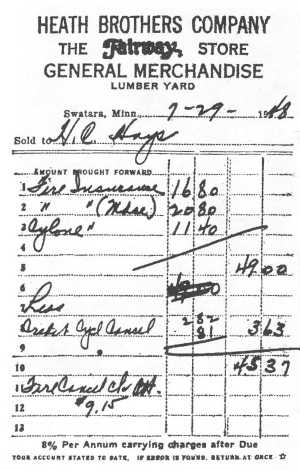 HEATH BROTHERS COMPANY
THE Fairway STORE
GENERAL MERCHANDISE
LUMBER YARD
Swatara, Minn. 7-29- 1948
Sold to H. C. Hays
AMOUNT BROUGHT FORWARD
1 Fire Insurance 16 80
2 " " (Mdse.) 20 80
3 Cyclone " 11 40
4
5 49 00
6
Less
Cancel 2 82
81 3 63
9 "
10 45 37
11 Fire Cancel
12 $9.15
13
8% Per Annum carrying charges after Due
YOUR ACCOUNT STATED TO DATE. IF ERROR IS FOUND, RETURN AT ONCE